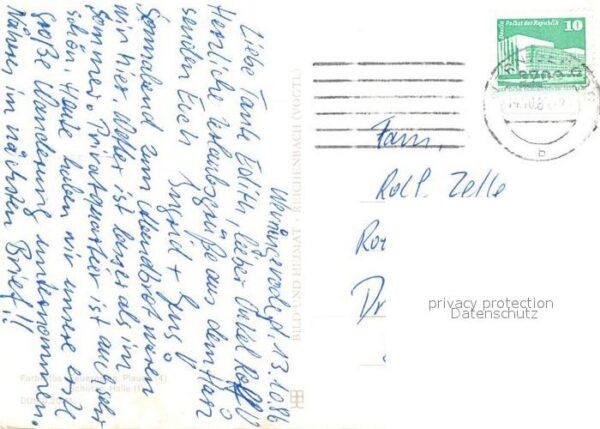 Wernigerode, d. 13.10.86
Liebe Tante Edith, lieber Onkel Rolf!
Herzliche Urlaubsgrüße aus dem Harz
senden Euch Ingrid +
Sonnabend zum Abendbrot waren
wir hier. Wetter ist besser als im
Sommer. Privatquartier ist auch sehr
schön. Heute haben wir unsere erste
große Wanderung unternommen.
Näheres im nächsten Brief!!
BILD UND HEIMAT · REICHENBACH (VOGTL)
Palast der Republik
10
Fam.
Rolf Zelle
Ro
Dr
privacy protection
Datenschutz